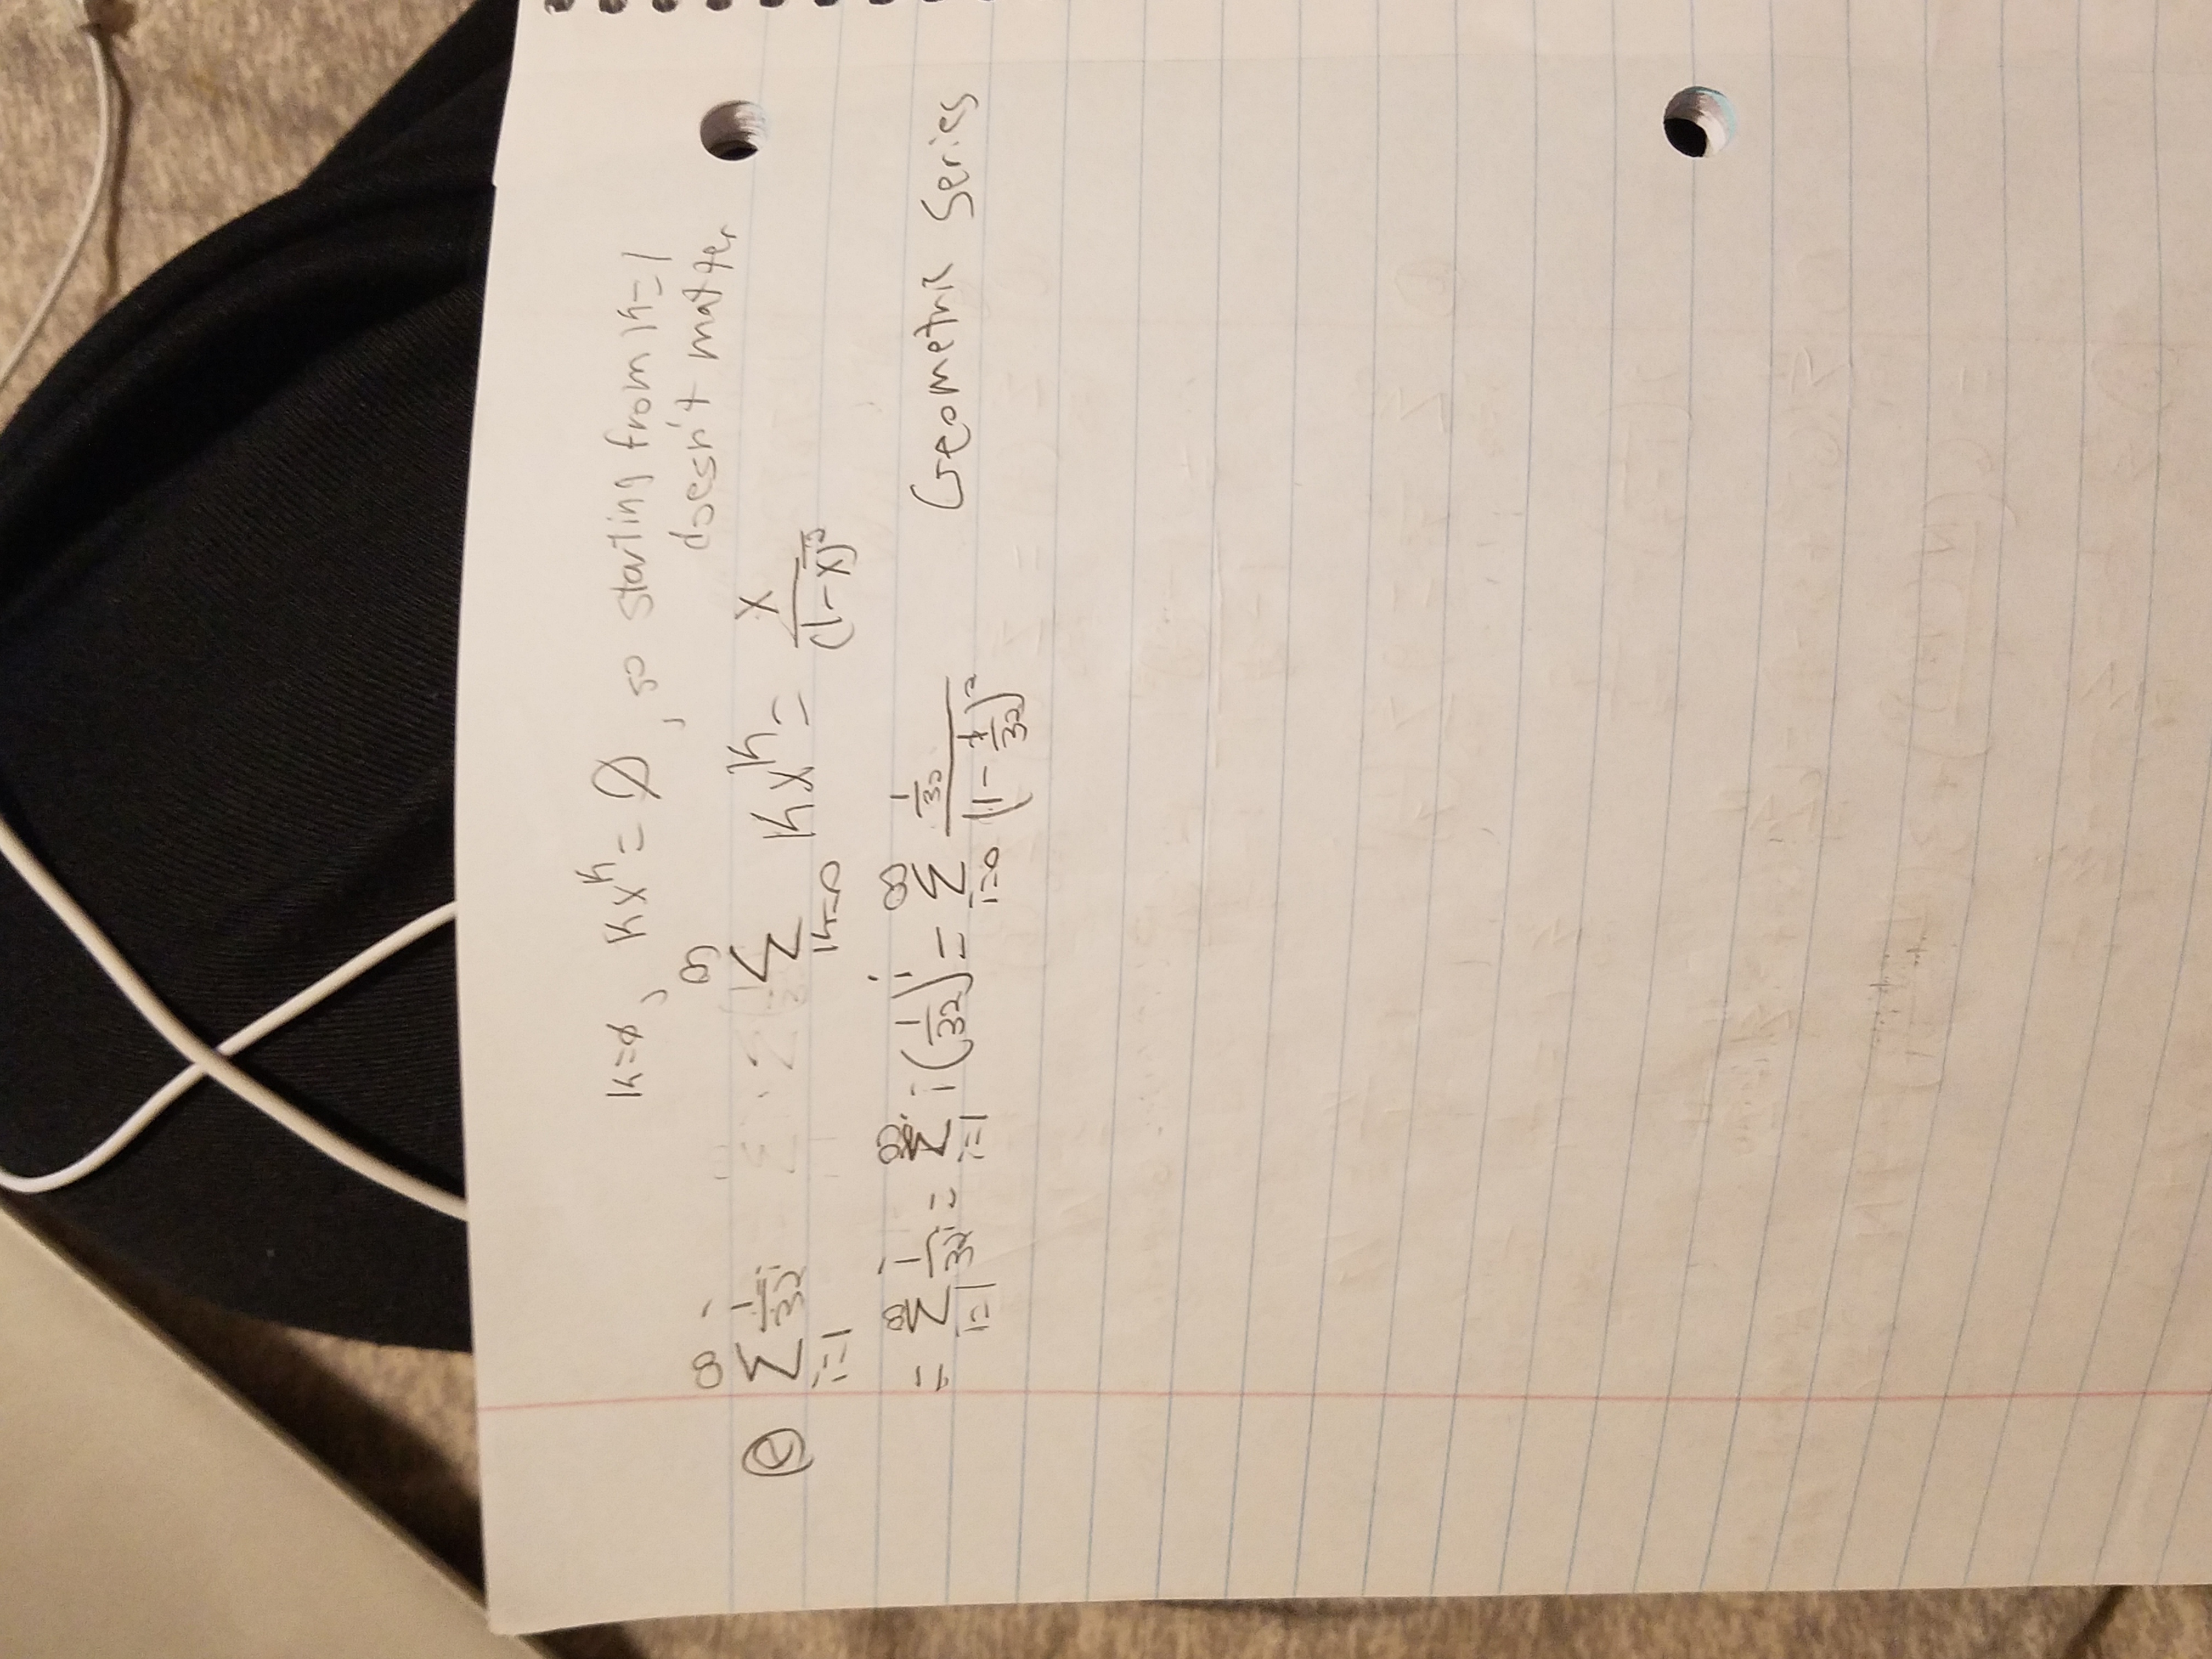 k=0, kx^k = 0, so starting from k=1
doesn't matter
e ∑_{i=1}^{∞} i/32^i ∑_{k=0}^{∞} kx^k = x/(1-x)^2
= ∑_{i=1}^{∞} i/32^i = ∑_{i=1}^{∞} i(1/32)^i = ∑_{i=0}^{∞} (1/32)/(1-1/32)^2 Geometric Series